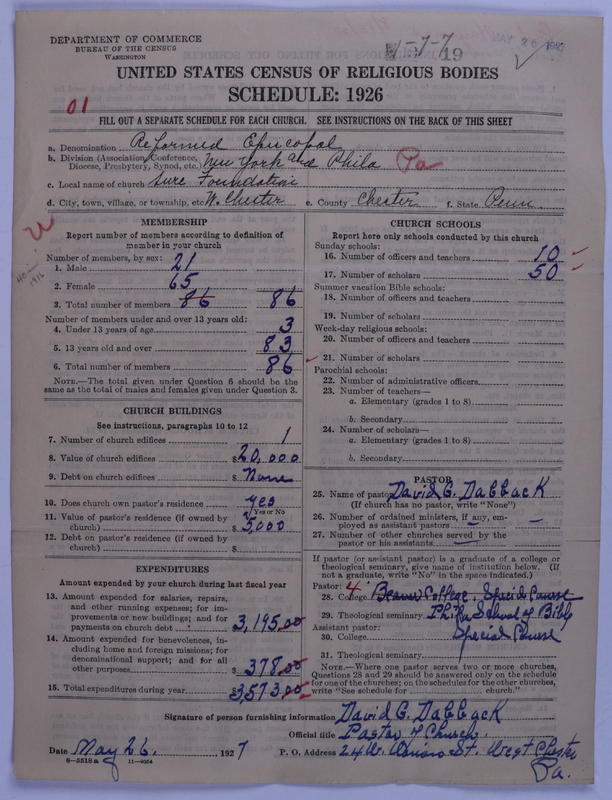 DEPARTMENT OF COMMERCE
BUREAU OF THE CENSUS
WASHINGTON
1-7-7 19
MAY 26 1927
UNITED STATES CENSUS OF RELIGIOUS BODIES
SCHEDULE: 1926
01
FILL OUT A SEPARATE SCHEDULE FOR EACH CHURCH. SEE INSTRUCTIONS ON THE BACK OF THIS SHEET
a. Denomination Reformed Episcopal
b. Division (Association, Conference, Diocese, Presbytery, Synod, etc.) New York and Phila Pa
c. Local name of church Sure Foundation
d. City, town, village, or township, etc. W. Chester e. County Chester f. State Penn
MEMBERSHIP
Report number of members according to definition of
member in your church
Number of members, by sex:
1. Male 21
2. Female 65
3. Total number of members 86 86
Number of members under and over 13 years old:
4. Under 13 years of age 3
5. 13 years old and over 83
6. Total number of members 86
NOTE.—The total given under Question 6 should be the
same as the total of males and females given under Question 3.
CHURCH BUILDINGS
See instructions, paragraphs 10 to 12
7. Number of church edifices 1
8. Value of church edifices $20,000
9. Debt on church edifices $None
10. Does church own pastor's residence yes
Yes or No
11. Value of pastor's residence (if owned by
church) $5000
12. Debt on pastor's residence (if owned by
church) $
EXPENDITURES
Amount expended by your church during last fiscal year
13. Amount expended for salaries, repairs,
and other running expenses; for im-
provements or new buildings; and for
payments on church debt $3,195.00
14. Amount expended for benevolences, in-
cluding home and foreign missions; for
denominational support; and for all
other purposes $378.00
15. Total expenditures during year $3,573.00
CHURCH SCHOOLS
Report here only schools conducted by this church
Sunday schools:
16. Number of officers and teachers 10
17. Number of scholars 50
Summer vacation Bible schools:
18. Number of officers and teachers
19. Number of scholars
Week-day religious schools:
20. Number of officers and teachers
21. Number of scholars
Parochial schools:
22. Number of administrative officers
23. Number of teachers—
a. Elementary (grades 1 to 8)
b. Secondary
24. Number of scholars—
a. Elementary (grades 1 to 8)
b. Secondary
PASTOR
25. Name of pastor David G. Dabback
(If church has no pastor, write "None")
26. Number of ordained ministers, if any, em-
ployed as assistant pastors —
27. Number of other churches served by the
pastor or his assistants —
If pastor (or assistant pastor) is a graduate of a college or
theological seminary, give name of institution below. (If
not a graduate, write "No" in the space indicated.)
Pastor: 4
28. College Beaver College, Special Course
29. Theological seminary Phila School of Bible
Assistant pastor: Special Course
30. College
31. Theological seminary
NOTE.—Where one pastor serves two or more churches,
Questions 28 and 29 should be answered only on the schedule
for one of the churches; on the schedules for the other churches,
write "See schedule for church."
Signature of person furnishing information David G. Dabback
Official title Pastor of Church
Date May 26, 1927 P. O. Address 24 W. Union St. West Chester
Pa.
8-5518a 11-9054